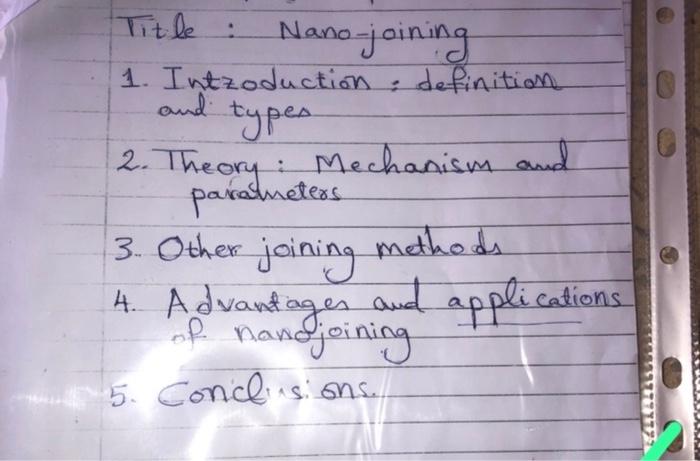 Title : Nano-joining
1. Introduction : definition
and types
2. Theory : Mechanism and
parameters
3. Other joining methods
4. Advantages and applications
of nanojoining
5. Conclusions.